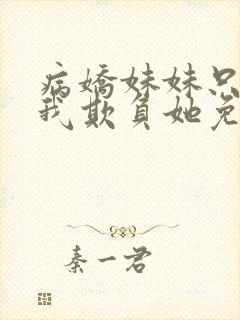 病嬌妹妹只
我欺負她免
秦一君